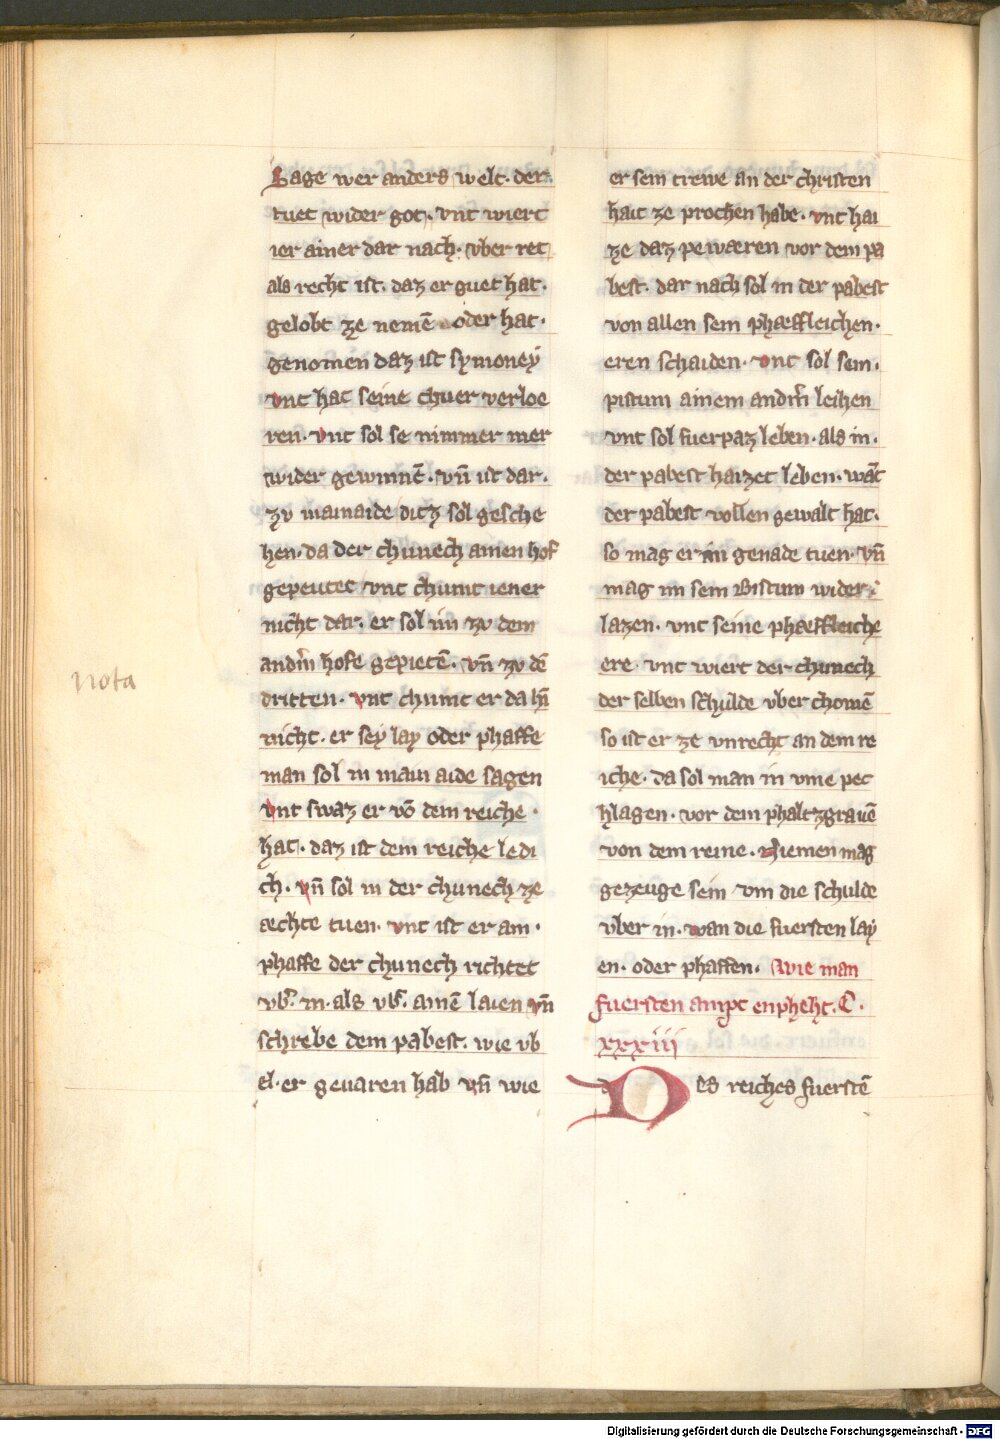 Sage wer anders welt. der
tuet wider got. vnt wiert
ier ainer dar nach. vber ret
als recht ist. daz er guet hat.
gelobt ze nemē oder hat.
genomen daz ist symoney
vnt hat seine chuer verloe
ren. vnt sol se nimmer mer
wider gewinnē. vn̄ ist dar.
zv mainaide ditz sol gesche
hen. da der chunech ainen hof
gepeutet vnt chumt iener
nicht dar. er sol im zv dem
andm̄ hofe gepietē. vn̄ zv dē
dritten. vnt chumt er da hī
nicht. er sey lay oder phaffe
man sol in main aide sagen
vnt swaz er vō dem reiche.
hat. daz ist dem reiche ledi
ch. vn̄ sol in der chunech ze
æchte tuen. vnt ist er ain.
phaffe der chunech richtet
vb' in. als vb' ainē laien vn̄
schrebe dem pabest. wie vb
el. er geuaren hab vn̄ wie
nota
er sein trewe an der christen
hait ze prochen habe. vnt hai
ze daz pewæren vor dem pa
best. dar nach sol in der pabest
von allen sein phaeffleichen.
eren schaiden. vnt sol sein.
pistum ainem andm̄ leihen
vnt sol fuerpaz leben. als in.
der pabest haizet leben. wāt
der pabest vollen gewalt hat.
so mag er im genade tuen. vn̄
mag im sein Bistum wider.
lazen. vnt seine phaeffleiche
ere. vnt wiert der chunech
der selben schulde vber chomē
so ist er ze vnrecht an dem re
iche. da sol man in vme pec
hlagen. vor dem phaltzgrauē
von dem reine. Niemen mag
gezeuge sein vm die schulde
vber in. wan die fuersten lay
en. oder phaffen. Wie man
fuersten ampt enpheht. C.
xxxiii
Des reiches fuerstē
Digitalisierung gefördert durch die Deutsche Forschungsgemeinschaft - DFG